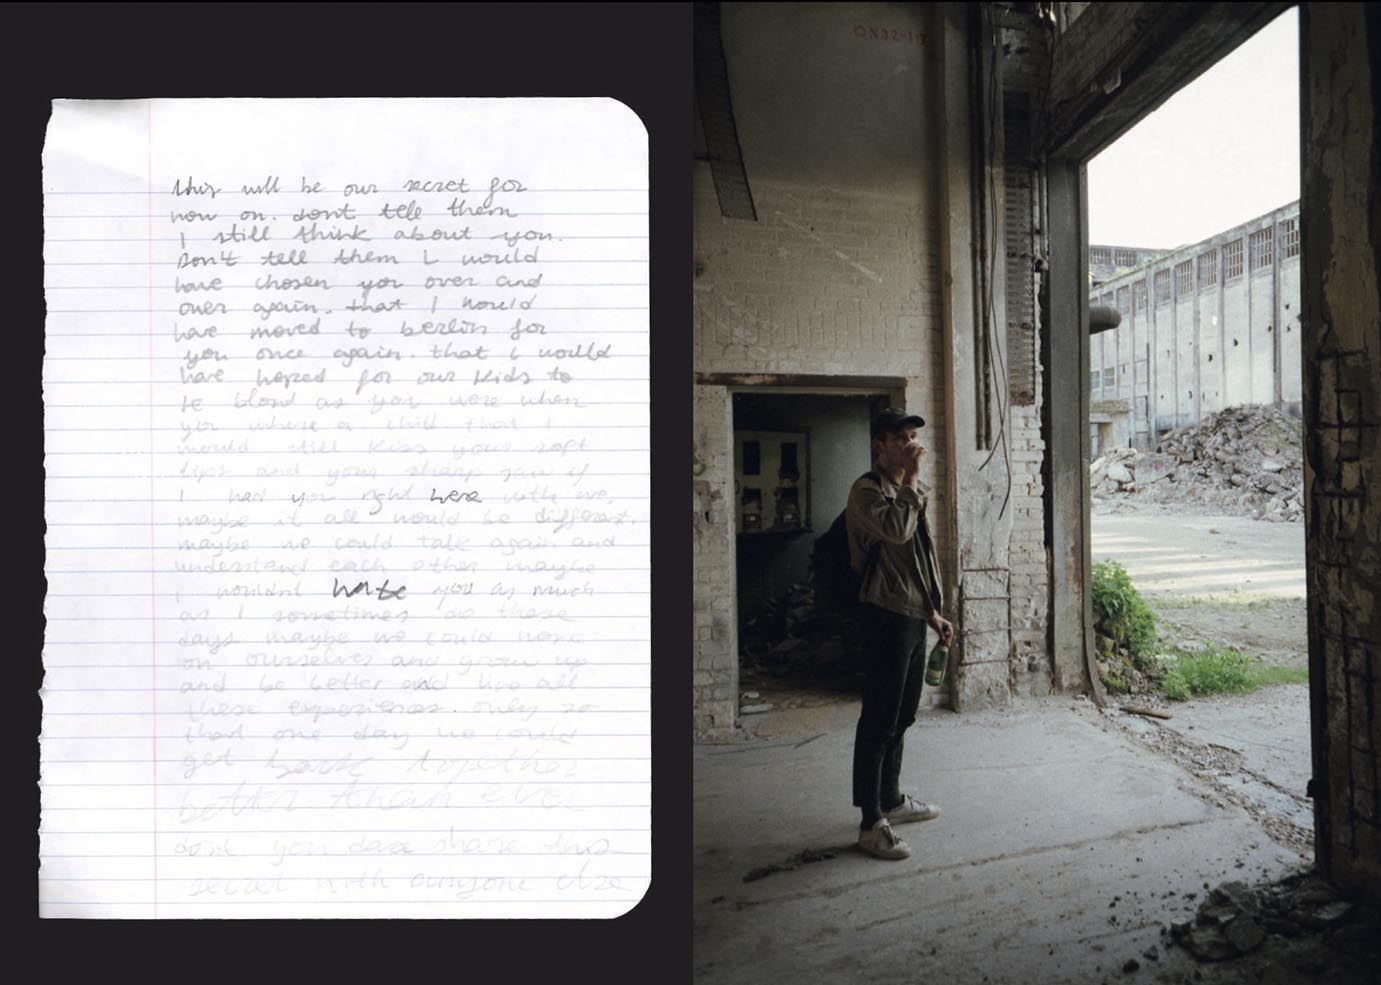 this will be our secret for
now on. dont tell them
I still think about you.
Don't tell them I would
have chosen you over and
over again. that I would
have moved to berlin for
you once again. that I would
have hoped for our kids to
be blond as you were when
you where a child that I
would still kiss your soft
lips and your sharp jaw if
I had you right here with me,
maybe it all would be different.
maybe we could talk again and
understand each other maybe
I wouldnt hate you as much
as I sometimes do these
days maybe we could work
on ourselves and grow up
and be better and live all
these experiences. only so
that one day we could
get back together
better than ever
dont you dare share this
secret with anyone else